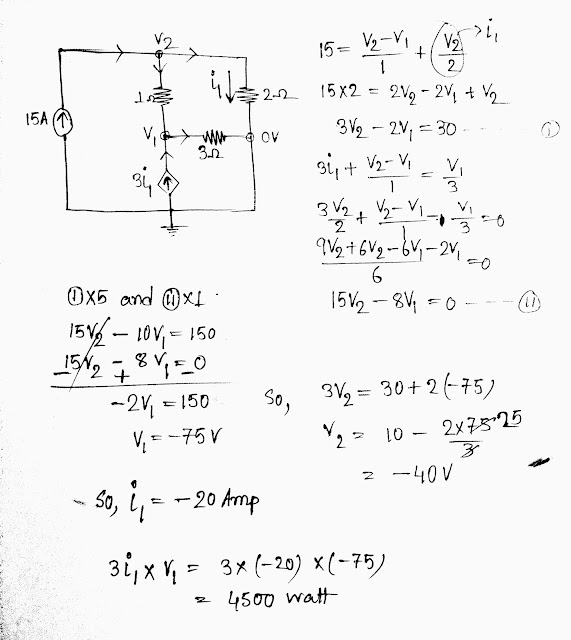 V2
15A
1Ω
i1
2Ω
V1
3Ω
0V
3i1
15 = (V2-V1)/1 + (V2/2) → i1
15x2 = 2V2 - 2V1 + V2
3V2 - 2V1 = 30 ---- (i)
3i1 + (V2-V1)/1 = V1/3
3V2/2 + (V2-V1)/1 - V1/3 = 0
(9V2+6V2-6V1-2V1)/6 = 0
15V2 - 8V1 = 0 ---- (ii)
(i)x5 and (ii)x1.
15V2 - 10V1 = 150
-15V2 - + 8V1 = -0
-2V1 = 150
V1 = -75V
So, 3V2 = 30+2(-75)
V2 = 10 - (2x75 25)/3
= -40V
- So, i1 = -20 Amp
3i1 x V1 = 3x(-20) x(-75)
= 4500 watt